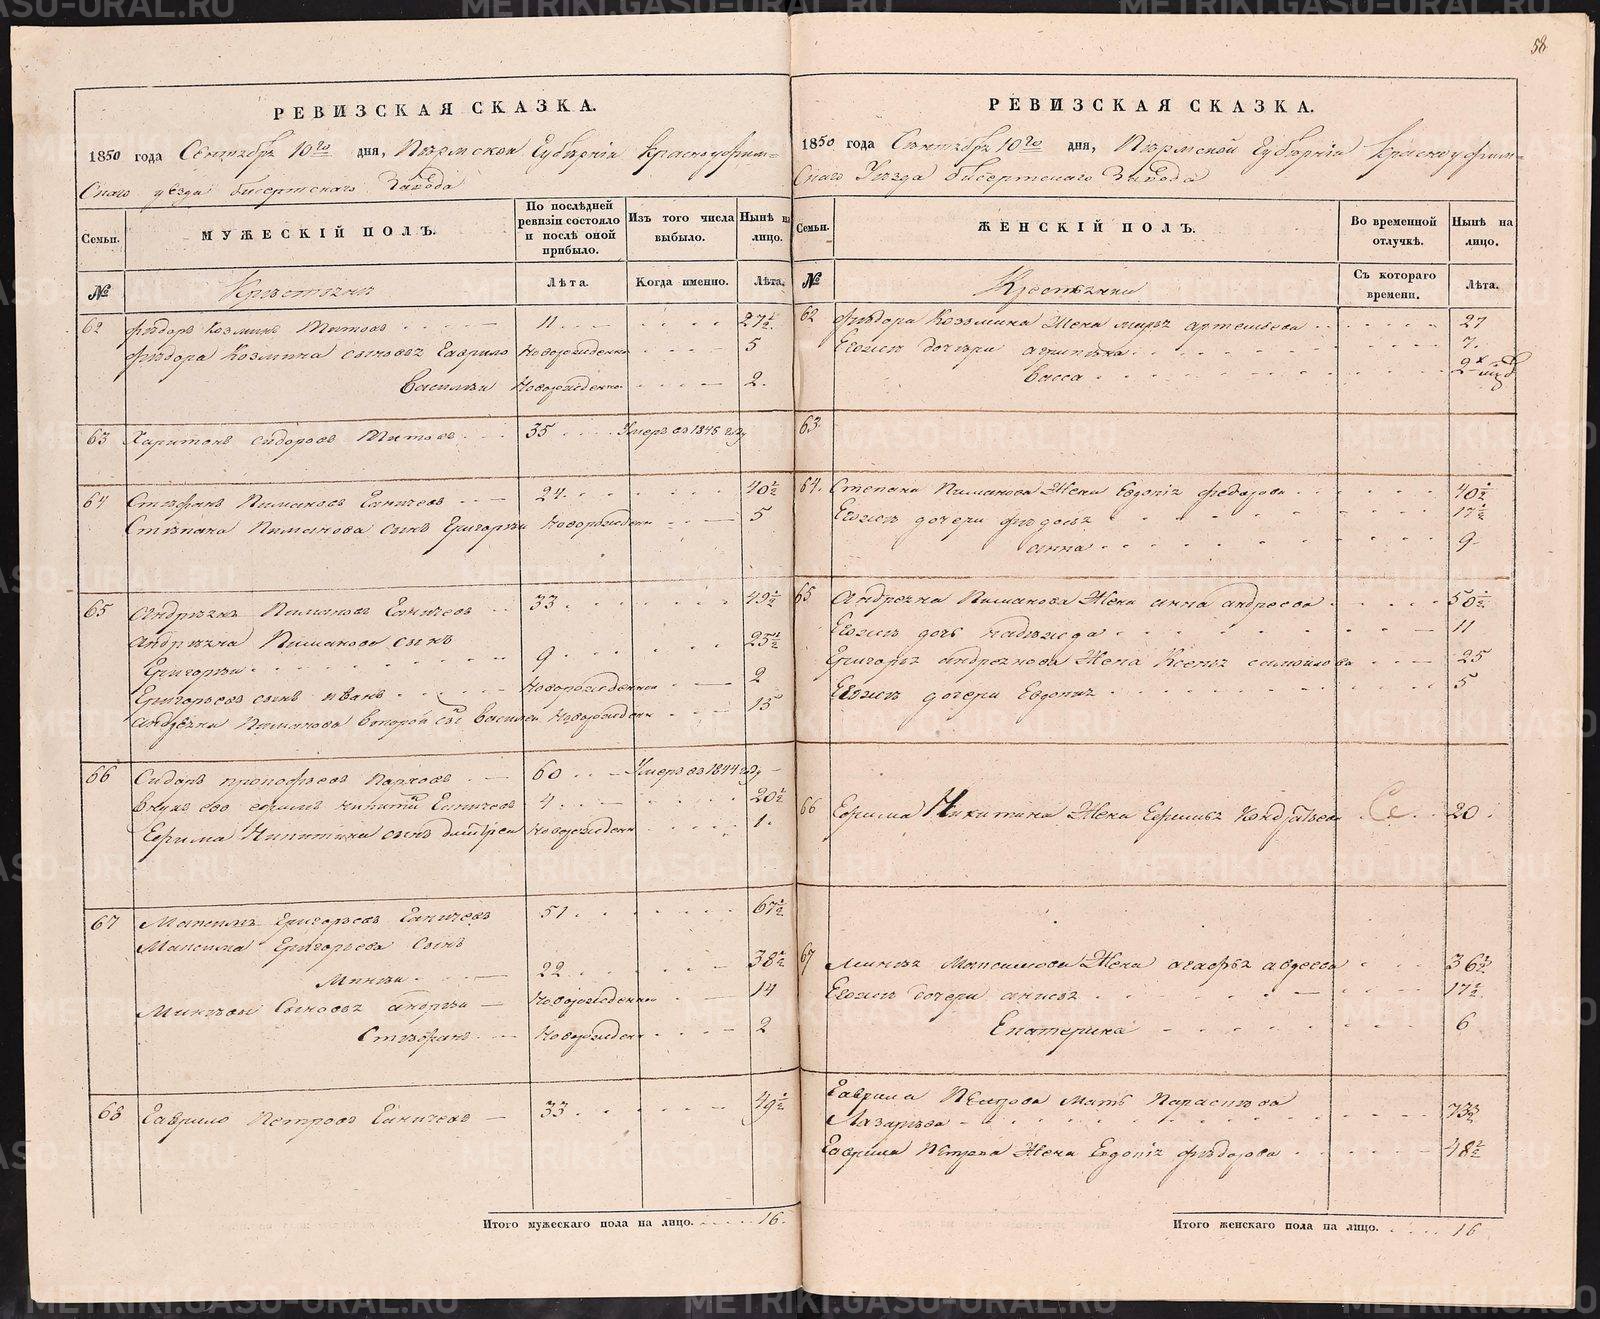 58
РЕВИЗСКАЯ СКАЗКА.
1850 года Сентября 10го дня, Пермской Губѣрніи Красноуфим-
скаго уѣзда бисертскаго Завода
Семьи.
МУЖЕСКІЙ ПОЛЪ.
По послѣдней ревизіи состояло и послѣ оной прибыло.
Изъ того числа выбыло.
Нынѣ на лицо.
№
Крестьяне
Лѣта.
Когда именно.
Лѣта.
62 Фѣдоръ Козминъ Титовъ 11 27½
Фѣдора Козмина сыновья Гаврило Новорожденно 5
Василѣи Новорожденно 2.
63 Харитонъ сидоровъ Титовъ 35 Умеръ въ 1848 году
64 Стѣфанъ Пимановъ Ганичевъ 24 40½
Стѣпана Пиманова сынъ Григорѣи Новорожден 5
65 Андрѣянъ Пимановъ Ганичевъ 33 49½
Андрѣяна Пиманова сынъ
Григорѣи 9 25½
Григорьевъ сынъ иванъ Новорожденно 2
Андрѣяна Пиманова второй сы Василеи Новорожден 15
66 Сидоръ прокофьевъ 60 Умеръ въ 1844 году
Внукъ его ефимъ никити Ганичевъ 4 20½
Ефима Никитина сынъ дмитреи Новорожден 1
67 Максимъ Григорьевъ Ганичевъ 51 67½
Максима Григорьева Сынъ
Минѣи 22 38½
Минѣевы Сыновья андрѣи Новорожденно 14
Стѣфанъ Новорожден 2
68 Гаврило Петровъ Ганичевъ 33 49½
Итого мужескаго пола на лицо. 16.
РЕВИЗСКАЯ СКАЗКА.
1850 года Сентября 10го дня, Пермской Губѣрніи Красноуфим-
скаго Уѣзда бисертскаго Завода
Семьи.
ЖЕНСКІЙ ПОЛЪ.
Во временной отлучкѣ.
Нынѣ на лицо.
№
Крестьянки
Съ котораго времени.
Лѣта.
62 Фѣдора Козьмина Жена марья артемьева 27
Егожъ дочѣри агрипѣна 7.
Васса 2
63
64. Степана Пиманова Жена Евдокія федорова 40½
Егожъ дочери фѣдосья 17½
анна 9
65 Андреяна Пиманова Жена анна андреева 50½
Егожъ дочь надѣжда 11
Григорья андреянова Жена Ксенья самойлова 25
Егожъ дочери Евдокия 5
66 Ефима Никитина Жена Ефимья Кондратьева 20
67 Минѣя Максимова Жена агафья авдеева 36½
Егожъ дочери анисья 17½
Екатерина 6
Гаврила Петрова мать Параскѣва
Лазарѣва 73½
Гаврила Петрова Жена Евдокія фѣдорова 48½
Итого женскаго пола на лицо. 16
METRIKI.GASO-URAL.RU